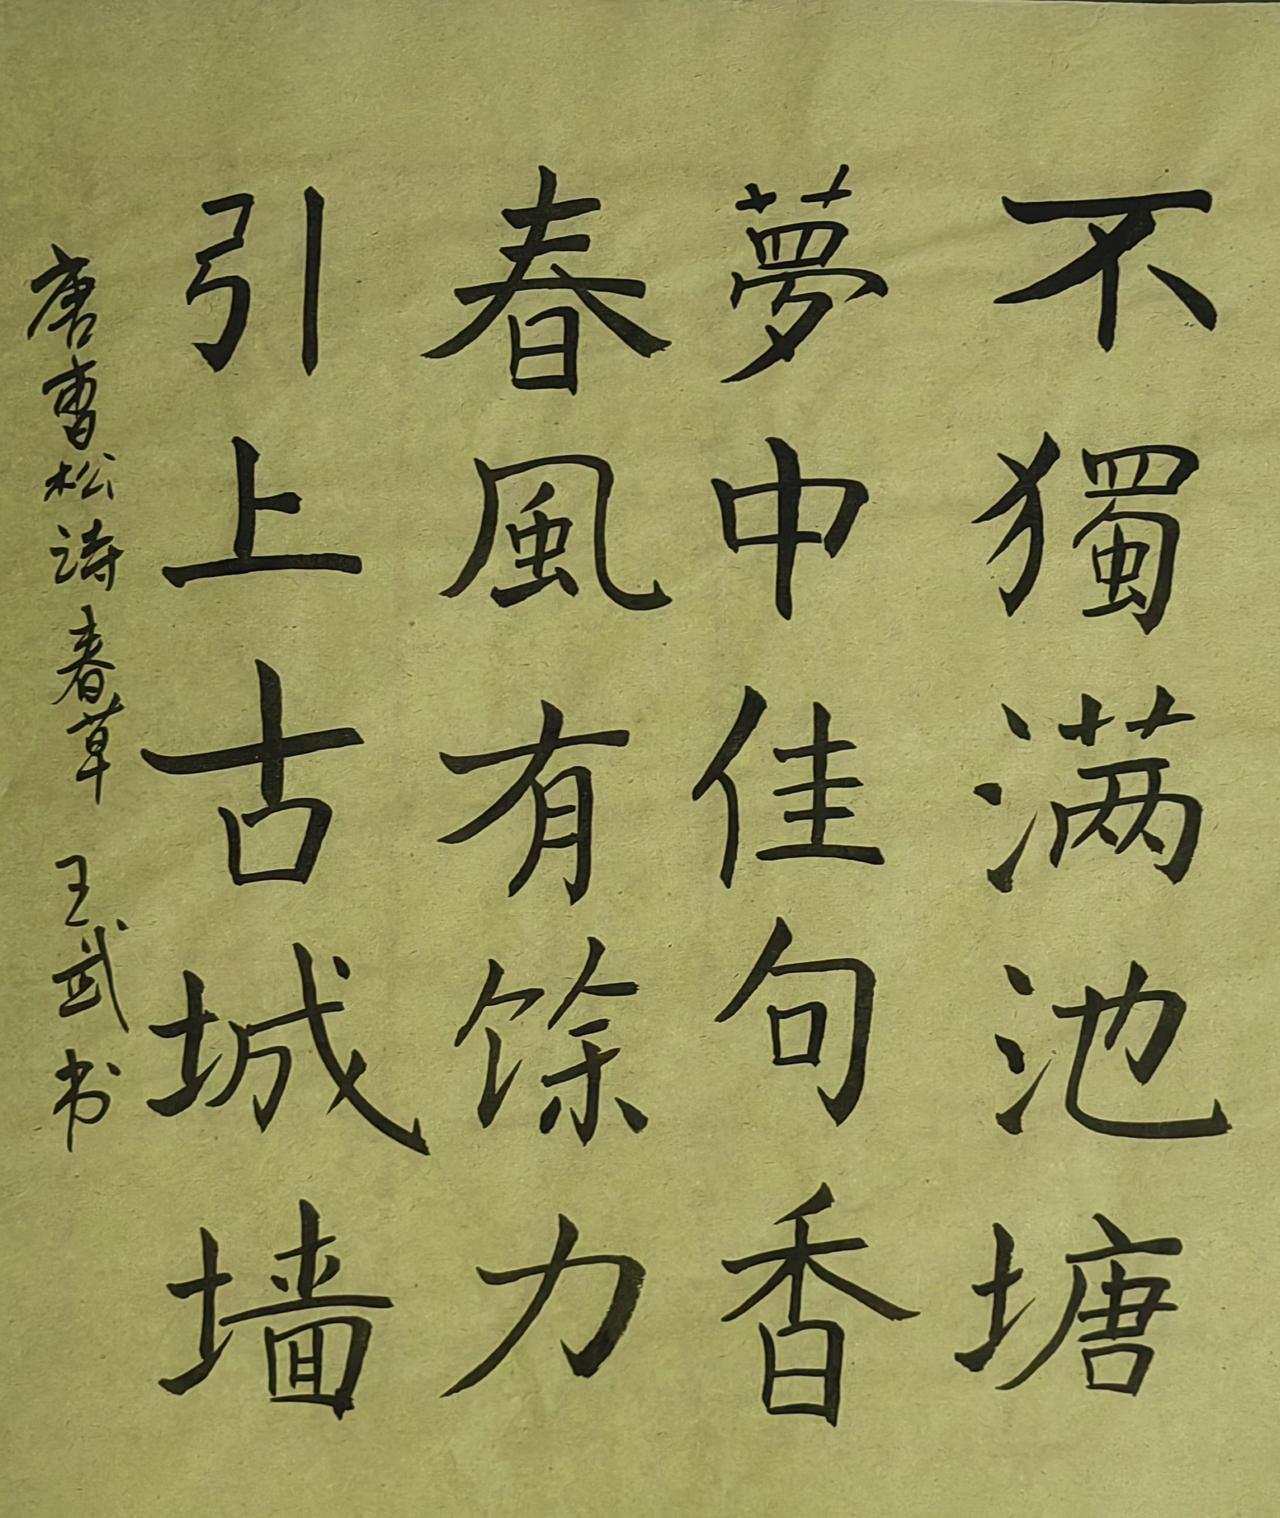 不獨满池塘
夢中佳句香
春風有馀力
引上古城墙
唐曹松诗春草 王武书